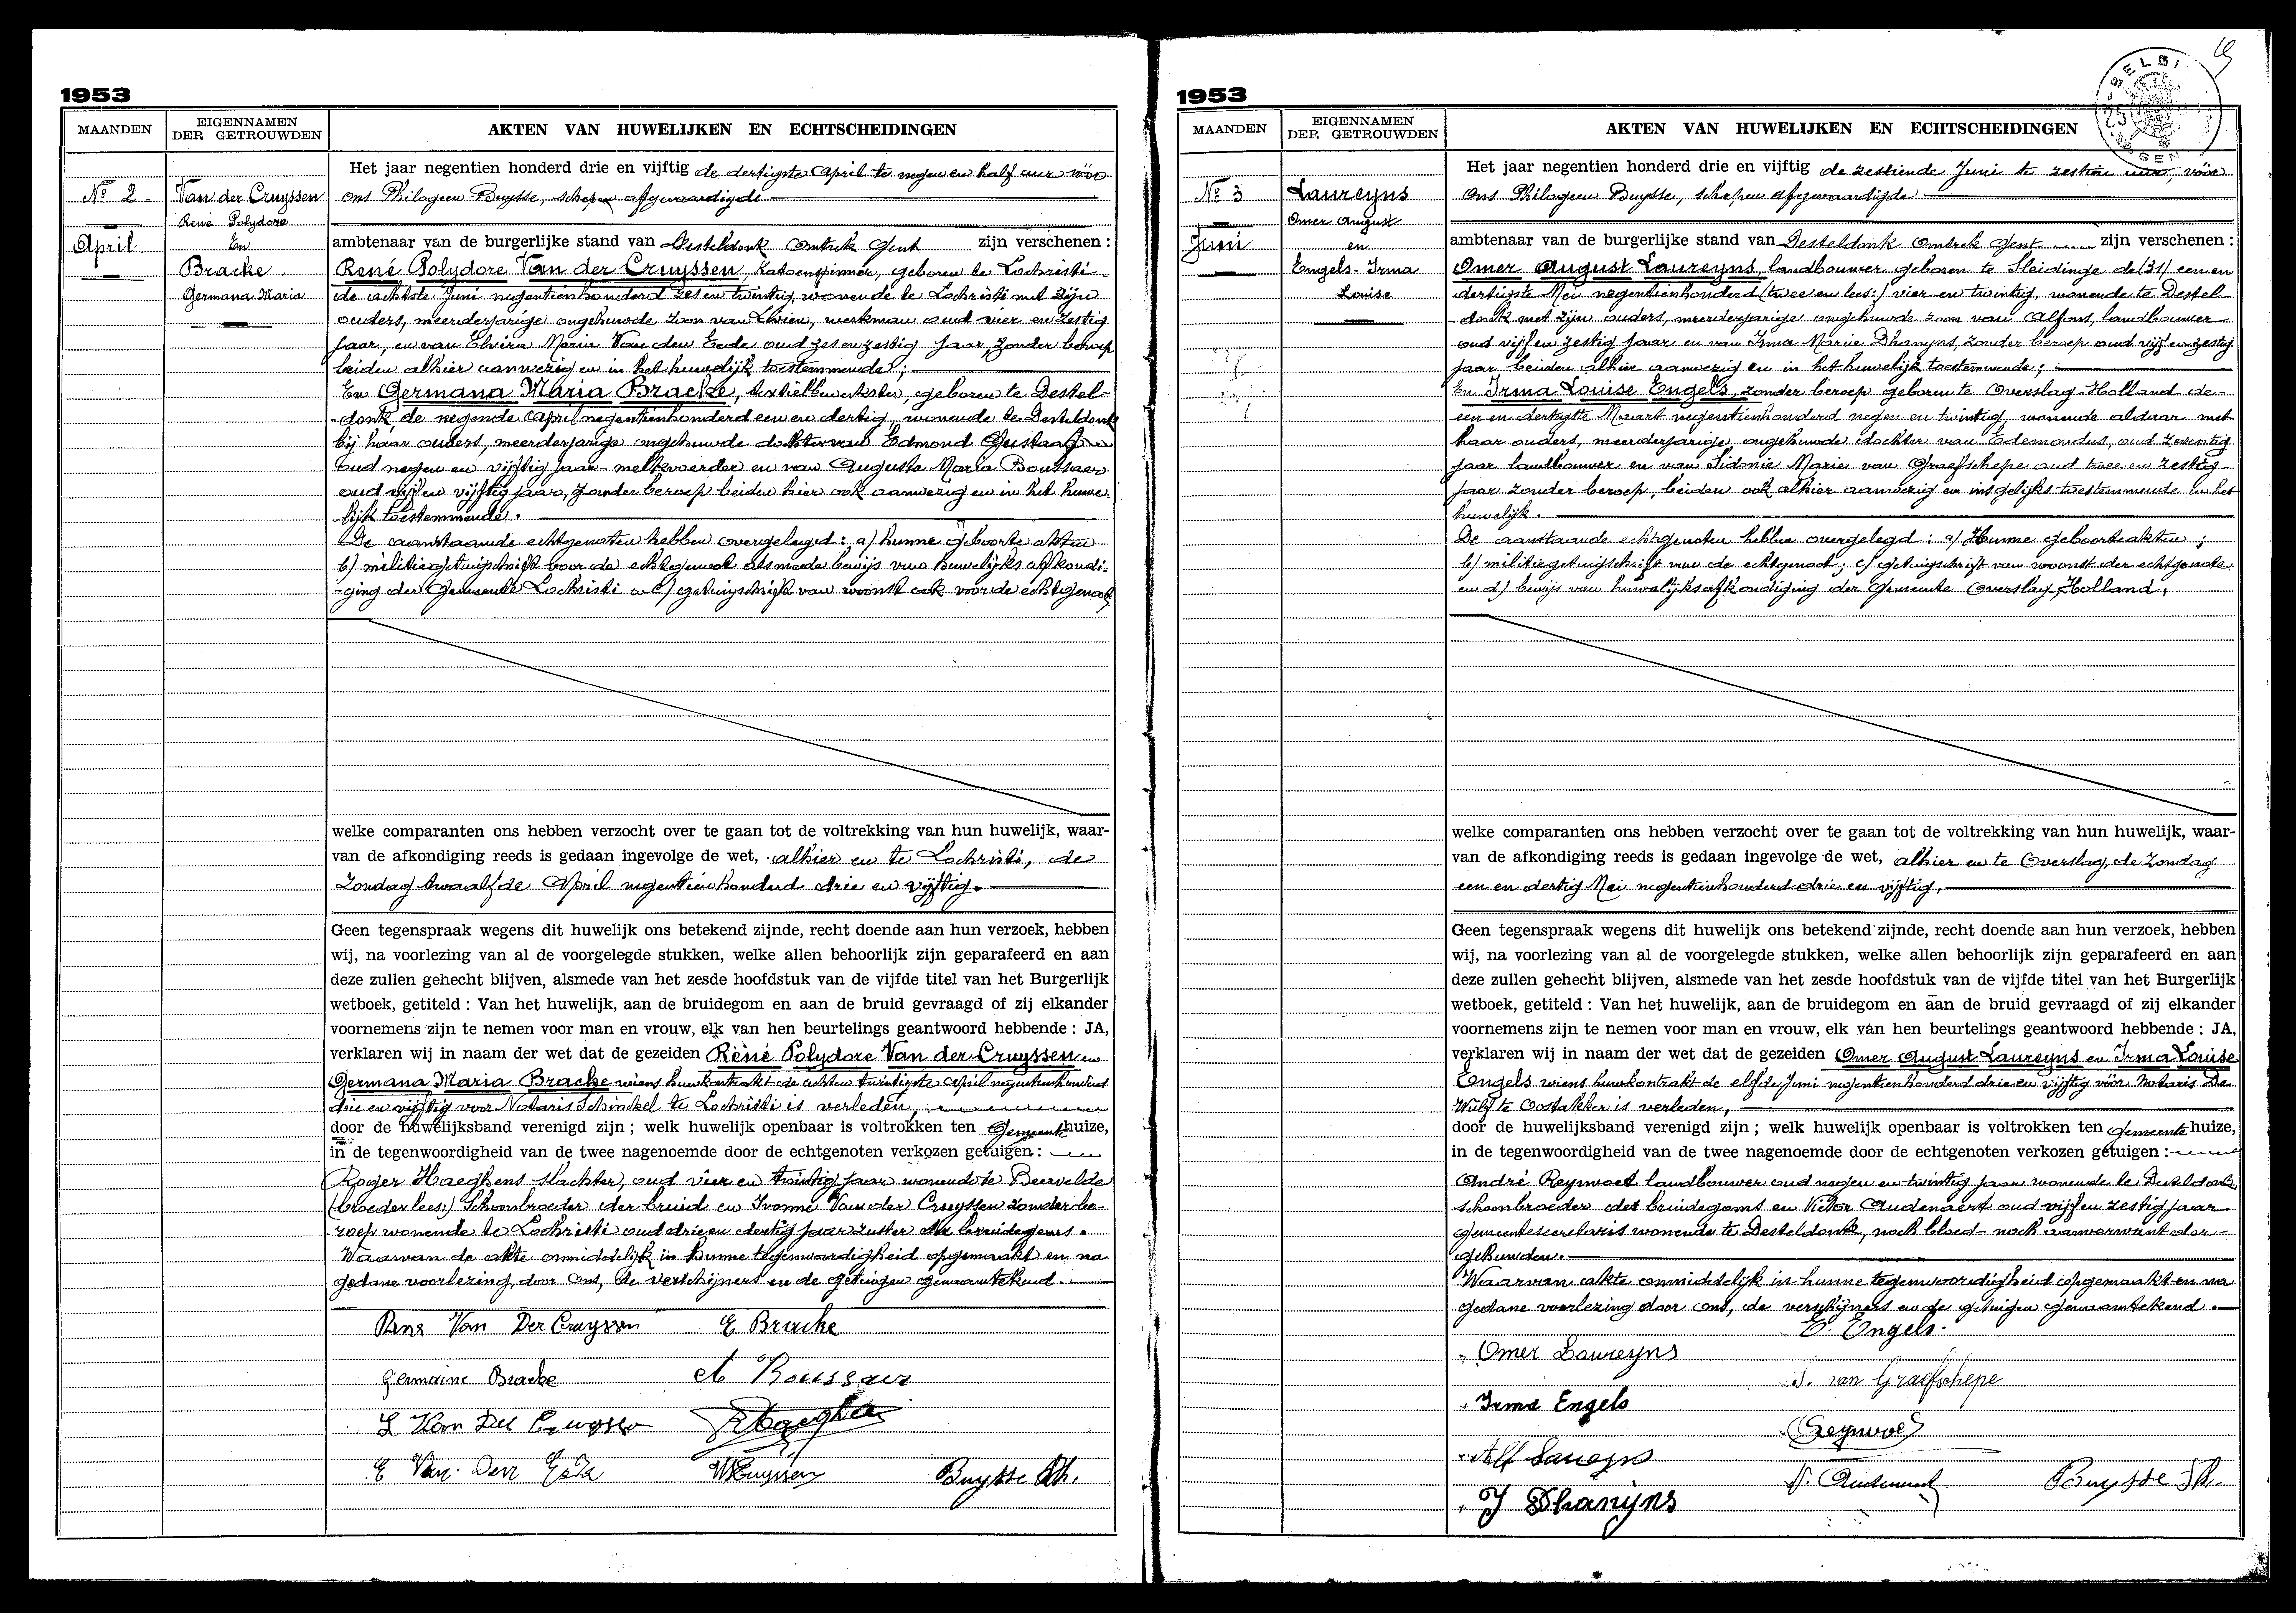 1953
MAANDEN
EIGENNAMEN
DER GETROUWDEN
AKTEN VAN HUWELIJKEN EN ECHTSCHEIDINGEN
Nº 2.
April
Van der Cruyssen
René Polydore
En
Bracke.
Germana Maria
Het jaar negentien honderd drie en vijftig de dertigste April te negen en half uur vóór
ons Philogeen Buysse, schepen afgevaardigde
ambtenaar van de burgerlijke stand van Desteldonk Omtrek Gent zijn verschenen :
René Polydore Van der Cruyssen, katoenspinner, geboren te Lochristi
de achtste Juni negentienhonderd zes en twintig, wonende te Lochristi met zijn
ouders, meerderjarige ongehuwde zoon van Livien, werkman oud vier en zestig
jaar, en van Elvira Maria Van den Eede oud zes en zestig jaar, zonder beroep
beiden alhier aanwezig en in het huwelijk toestemmende;
En Germana Maria Bracke, textielbewerkster, geboren te Destel-
donk de negende April negentienhonderd een en dertig, wonende te Desteldonk
bij haar ouders, meerderjarige ongehuwde dochter van Edmond Gustaaf
oud negen en vijftig jaar melkvoerder en van Augusta Maria Boussaer
oud vijf en vijftig jaar, zonder beroep beiden hier ook aanwezig en in het huwe
lijk toestemmende.
De aanstaande echtgenoten hebben overgelegd : a) hunne geboorte akten
b) militiegetuigschrift voor de echtgenoot alsmede bewijs van huwelijks afkondi-
ging der Gemeente Lochristi en c) getuigschrift van woonst ook voor de echtgenoot
welke comparanten ons hebben verzocht over te gaan tot de voltrekking van hun huwelijk, waar-
van de afkondiging reeds is gedaan ingevolge de wet, alhier en te Lochristi, de
Zondag twaalfde April negentienhonderd drie en vijftig.
Geen tegenspraak wegens dit huwelijk ons betekend zijnde, recht doende aan hun verzoek, hebben
wij, na voorlezing van al de voorgelegde stukken, welke allen behoorlijk zijn geparafeerd en aan
deze zullen gehecht blijven, alsmede van het zesde hoofdstuk van de vijfde titel van het Burgerlijk
wetboek, getiteld : Van het huwelijk, aan de bruidegom en aan de bruid gevraagd of zij elkander
voornemens zijn te nemen voor man en vrouw, elk van hen beurtelings geantwoord hebbende : JA,
verklaren wij in naam der wet dat de gezeiden Réné Polydore Van der Cruyssen en
Germana Maria Bracke wiens huwkontrakt de achten twintigste April negentienhonderd
drie en vijftig voor Notaris Schinckel te Lochristi is verleden,
door de huwelijksband verenigd zijn ; welk huwelijk openbaar is voltrokken ten Gemeentehuize,
in de tegenwoordigheid van de twee nagenoemde door de echtgenoten verkozen getuigen :
Roger Haeghens slachter, oud vier en twintig jaar wonende te Beervelde
(broeder lees:) Schoonbroeder der bruid en Ivonne Van der Cruyssen zonder be-
roep wonende te Lochristi oud drie en dertig jaar zuster des bruidegoms.
Waarvan de akte onmiddelijk in hunne tegenwoordigheid opgemaakt en na
gedane voorlezing, door ons, de verschijners en de getuigen genaamtekend.
Rene Van Der Cruyssen E Bracke
Germaine Bracke A Boussaer
L Van Der Cruyssen
E Van Den Eede Buysse Ph.
1953
MAANDEN
EIGENNAMEN
DER GETROUWDEN
AKTEN VAN HUWELIJKEN EN ECHTSCHEIDINGEN
BELGI
Nº 3
Juni
Laureyns
Omer August
en
Engels-Irma
Louise
Het jaar negentien honderd drie en vijftig de zestiende Juni te zestien uur, vóór
ons Philogeen Buysse, schepen afgevaardigde
ambtenaar van de burgerlijke stand van Desteldonk Omtrek Gent zijn verschenen :
Omer August Laureyns, landbouwer geboren te Sleidinge de (31) een en
dertigste Mei negentienhonderd (twee en lees:) vier en twintig, wonende te Destel-
donk met zijn ouders, meerderjarige ongehuwde zoon van Alfons, landbouwer
oud vijf en zestig jaar en van Irma Marie Dhanyns, zonder beroep oud vijf en zestig
jaar beiden alhier aanwezig en in het huwelijk toestemmende;
En Irma Louise Engels, zonder beroep geboren te Overslag-Holland de
een en dertigste Maart negentienhonderd negen en twintig, wonende aldaar met
haar ouders, meerderjarige, ongehuwde dochter van Edemondus, oud zeventig
jaar landbouwer en van Sidonie Marie van Graefschepe oud twee en zestig
jaar zonder beroep, beiden ook alhier aanwezig en insgelijks toestemmende in het
huwelijk.
De aanstaande echtgenoten hebben overgelegd : a) Hunne geboorteakten ;
b) militiegetuigschrift van de echtgenoot; c) getuigschrift van woonst der echtgenote
en d) bewijs van huwelijksafkondiging der Gemeente Overslag, Holland,
welke comparanten ons hebben verzocht over te gaan tot de voltrekking van hun huwelijk, waar-
van de afkondiging reeds is gedaan ingevolge de wet, alhier en te Overslag, de Zondag
een en dertig Mei negentienhonderd drie en vijftig,
Geen tegenspraak wegens dit huwelijk ons betekend zijnde, recht doende aan hun verzoek, hebben
wij, na voorlezing van al de voorgelegde stukken, welke allen behoorlijk zijn geparafeerd en aan
deze zullen gehecht blijven, alsmede van het zesde hoofdstuk van de vijfde titel van het Burgerlijk
wetboek, getiteld : Van het huwelijk, aan de bruidegom en aan de bruid gevraagd of zij elkander
voornemens zijn te nemen voor man en vrouw, elk van hen beurtelings geantwoord hebbende : JA,
verklaren wij in naam der wet dat de gezeiden Omer August Laureyns en Irma Louise
Engels wiens huwkontrakt de elfde Juni negentienhonderd drie en vijftig vóór Notaris De
Wulf te Oostakker is verleden,
door de huwelijksband verenigd zijn ; welk huwelijk openbaar is voltrokken ten gemeentehuize,
in de tegenwoordigheid van de twee nagenoemde door de echtgenoten verkozen getuigen :
André Reynvoet landbouwer oud negen en twintig jaar wonende te Desteldonk
schoonbroeder des bruidegoms en Victor Audenaert oud vijf en zestig jaar
gemeentesecretaris wonende te Desteldonk, noch bloed- noch aanverwant der
gehuwden.
Waarvan akte onmiddelijk in hunne tegenwoordigheid opgemaakt en na
gedane voorlezing door ons, de verschijners en de getuigen genaamtekend.
E. Engels.
Omer Laureyns
S. van Graefschepe
Irma Engels
Reynvoet
Alf Laureyns
V. Audenaert Buysse Ph.
I Dhanijns